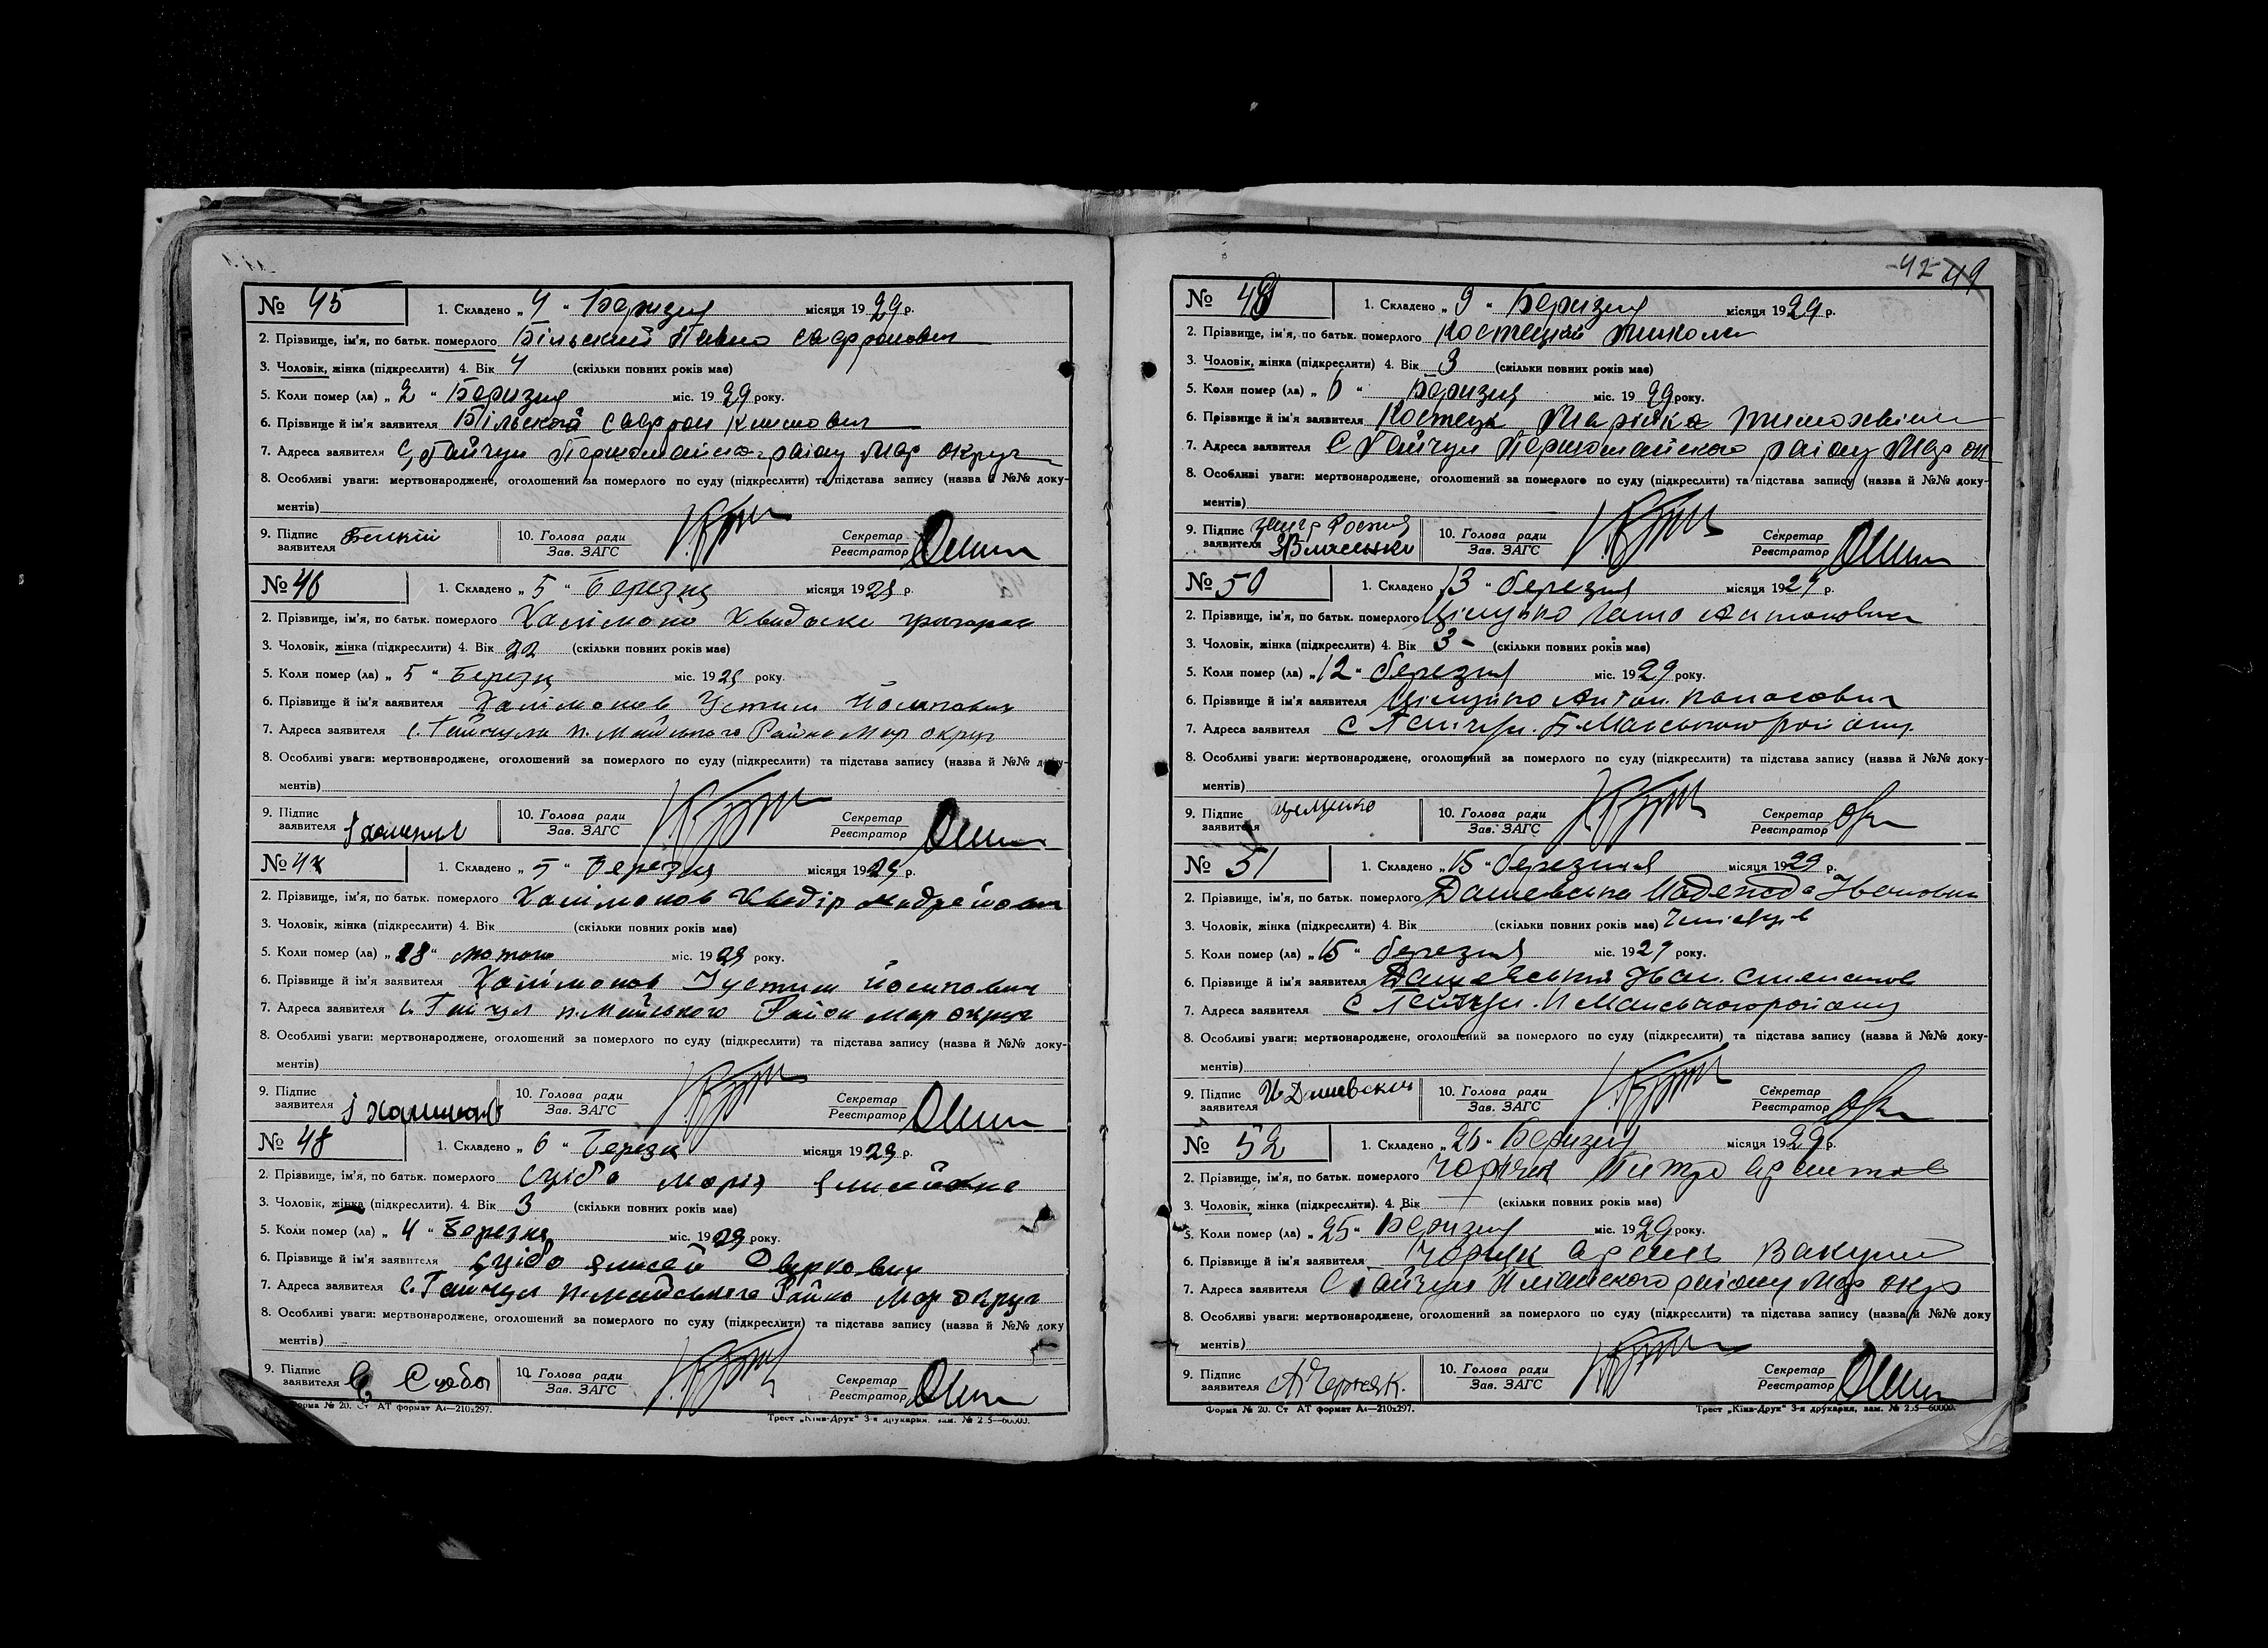 № 45 1. Складено „ 4 “ Беризня місяця 1929 р.
2. Прізвище, ім'я, по батьк. померлого Більский Павло Сафронович
3. Чоловік, жінка (підкреслити) 4. Вік 4 (скільки повних років має)
5. Коли помер (ла) „ 2 “ Беризня міс. 1929 року.
6. Прізвище й ім'я заявителя Більской Сафрон
7. Адреса заявителя С Гайчул Першомайско району Мар округи
8. Особливі уваги: мертвонароджене, оголошений за померлого по суду (підкреслити) та підстава запису (назва й №№ доку-
ментів)
9. Підпис заявителя 10. Голова ради Зав. ЗАГС Секретар Реєстратор
№ 46 1. Складено „ 5 “ Березня місяця 1929 р.
2. Прізвище, ім'я, по батьк. померлого Халімоно
3. Чоловік, жінка (підкреслити) 4. Вік 22 (скільки повних років має)
5. Коли помер (ла) „ 5 “ Березн міс. 1929 року.
6. Прізвище й ім'я заявителя Халімонов Устим Йосипович
7. Адреса заявителя с. Гайчула п. Майського Району Мар округ
8. Особливі уваги: мертвонароджене, оголошений за померлого по суду (підкреслити) та підстава запису (назва й №№ доку-
ментів)
9. Підпис заявителя 10. Голова ради Зав. ЗАГС Секретар Реєстратор
№ 47 1. Складено „ 5 “ Березня місяця 1929 р.
2. Прізвище, ім'я, по батьк. померлого Халімонов
3. Чоловік, жінка (підкреслити) 4. Вік (скільки повних років має)
5. Коли помер (ла) „ 28 “ лютого міс. 1929 року.
6. Прізвище й ім'я заявителя Халімонов Устим Йосипович
7. Адреса заявителя с. Гайчул п. Майського Район Мар округ
8. Особливі уваги: мертвонароджене, оголошений за померлого по суду (підкреслити) та підстава запису (назва й №№ доку-
ментів)
9. Підпис заявителя 10. Голова ради Зав. ЗАГС Секретар Реєстратор
№ 48 1. Складено „ 6 “ Березн місяця 1929 р.
2. Прізвище, ім'я, по батьк. померлого Сціба Марія
3. Чоловік, жінка (підкреслити). 4. Вік 3 (скільки повних років має)
5. Коли помер (ла) „ 4 “ Березня міс. 1929 року.
6. Прізвище й ім'я заявителя Єлисей
7. Адреса заявителя с. Гайчул п. майського Району Мар округ
8. Особливі уваги: мертвонароджене, оголошений за померлого по суду (підкреслити) та підстава запису (назва й №№ доку
ментів)
9. Підпис заявителя 10. Голова ради Зав. ЗАГС Секретар Реєстратор
Форма № 20. Ст АТ формат А4—210x297.
Трест „Київ-Друк“ 3-я друкарня, зам. № 235—60000.
42 49
№ 49 1. Складено „ 9 “ Беризня місяця 1929 р.
2. Прізвище, ім'я, по батьк. померлого Костецкий Микола
3. Чоловік, жінка (підкреслити) 4. Вік 3 (скільки повних років має)
5. Коли помер (ла) „ 6 “ Беризня міс. 1929 року.
6. Прізвище й ім'я заявителя Костецк Марійка
7. Адреса заявителя С Гайчул Першомайского району Мар ок
8. Особливі уваги: мертвонароджене, оголошений за померлого по суду (підкреслити) та підстава запису (назва й №№ доку-
ментів)
9. Підпис заявителя 10. Голова ради Зав. ЗАГС Секретар Реєстратор
№ 50 1. Складено „ 13 “ березня місяця 1929 р.
2. Прізвище, ім'я, по батьк. померлого Антонович
3. Чоловік, жінка (підкреслити) 4. Вік 3 - (скільки повних років має)
5. Коли помер (ла) „ 12 “ березня міс. 1929 року.
6. Прізвище й ім'я заявителя Антон Панасович
7. Адреса заявителя С Гайчул. П Маьського району.
8. Особливі уваги: мертвонароджене, оголошений за померлого по суду (підкреслити) та підстава запису (назва й №№ доку-
ментів)
9. Підпис заявителя 10. Голова ради Зав. ЗАГС Секретар Реєстратор
№ 51 1. Складено „ 15 “ березня місяця 1929 р.
2. Прізвище, ім'я, по батьк. померлого Дашевська Надежда Івановна
3. Чоловік, жінка (підкреслити) 4. Вік (скільки повних років має)
5. Коли помер (ла) „ 15 “ березня міс. 1929 року.
6. Прізвище й ім'я заявителя Дашевський Іван
7. Адреса заявителя С Гайчул. П Маьського району
8. Особливі уваги: мертвонароджене, оголошений за померлого по суду (підкреслити) та підстава запису (назва й №№ доку-
ментів)
9. Підпис заявителя И Дашевский 10. Голова ради Зав. ЗАГС Секретар Реєстратор
№ 52 1. Складено „ 26 “ Беризня місяця 1929 р.
2. Прізвище, ім'я, по батьк. померлого Чорняк Питро
3. Чоловік, жінка (підкреслити). 4. Вік — (скільки повних років має)
5. Коли помер (ла) „ 25 “ Беризня міс. 1929 року.
6. Прізвище й ім'я заявителя Чорняк
7. Адреса заявителя С Гайчул П майского району Мар окр
8. Особливі уваги: мертвонароджене, оголошений за померлого по суду (підкреслити) та підстава запису (назва й №№ доку
ментів)
9. Підпис заявителя А Черняк. 10. Голова ради Зав. ЗАГС Секретар Реєстратор
Форма № 20. Ст АТ формат А4—210x297.
Трест „Київ-Друк“ 3-я друкарня, зам. № 235—60000.